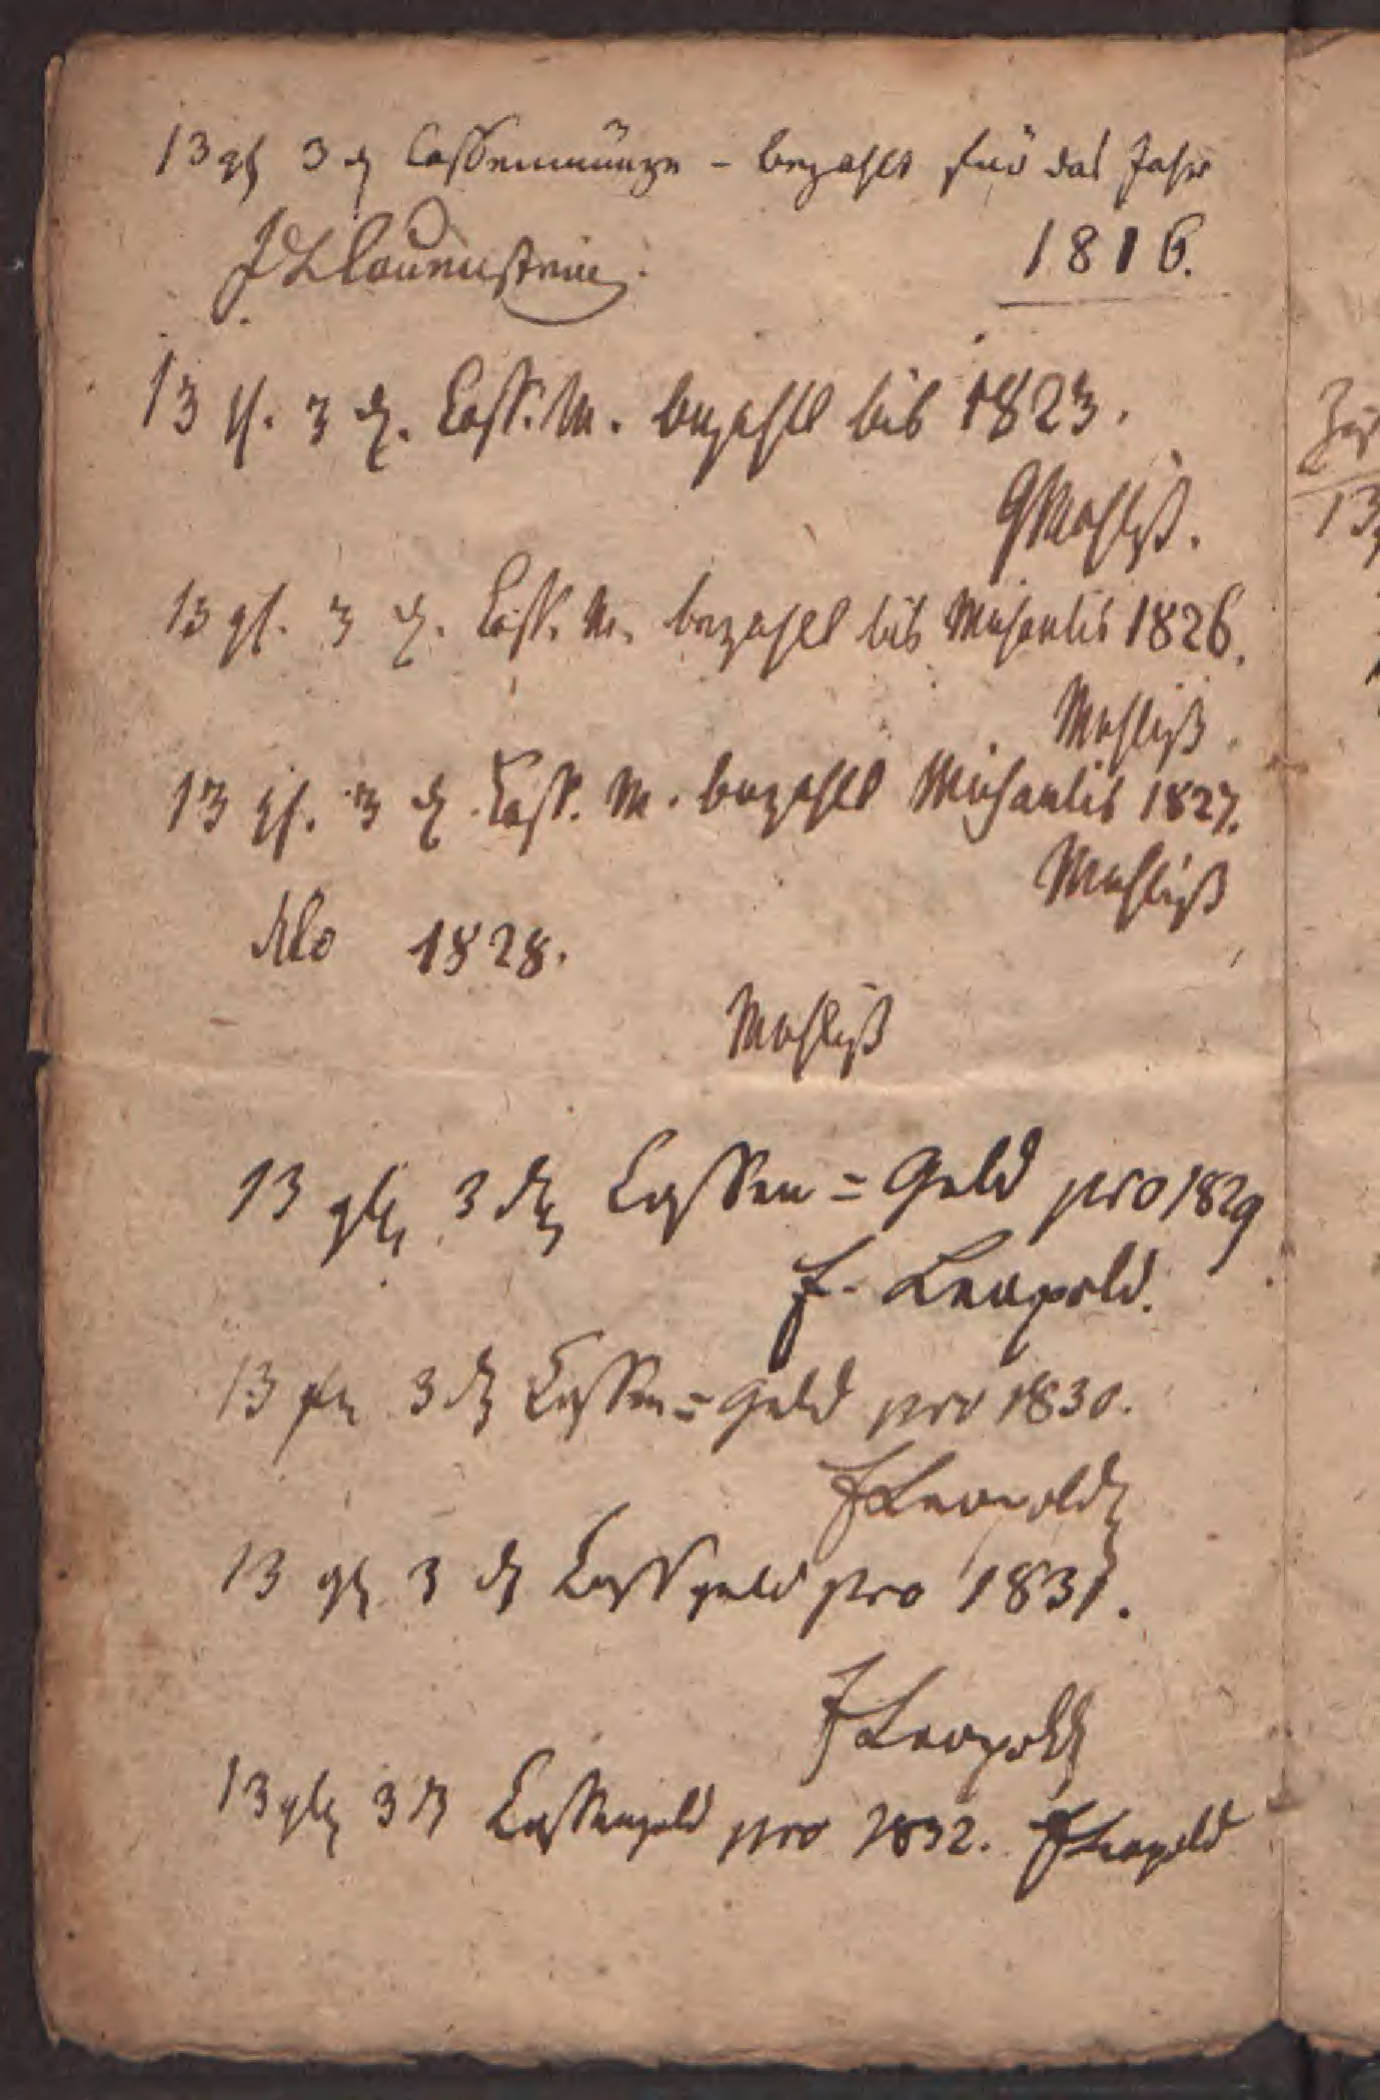 13 gl 3 d Cassenmünze - bezahlt für das Jahr
1816.
J L Lauenstein.
13 gl. 3 d. Cass. M. bezahlt bis 1823.
13 gl. 3 d. Cass. M. bezahlt bis Michaelis 1826.
13 gl. 3 d. Cass. M. bezahlt Michaelis 1827.
dito 1828.
13 gl 3 d Cassen = Geld pro 1829
F. Leopold.
13 3 d Cassen = Geld pro 1830.
F Leopold
13 gl 3 d Cassgeld pro 1831.
F Leopold
13 gl 3 d Cassengeld pro 1832. F Leopold
13